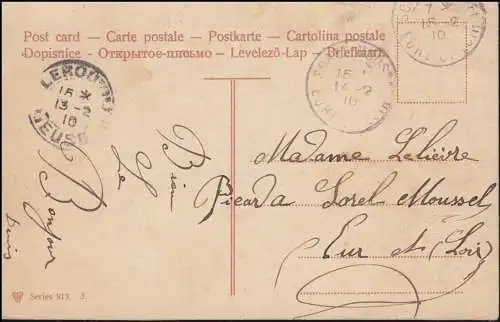 Post card - Carte postale - Postkarte - Cartolina postale
Dopisnice - Открытое письмо - Levelező-Lap - Briefkaart
LEROU
15 *
13 -2
10
MEUSE
15
14 -2
10
EURE
15 -2
10
EURE
Bonjour
Le
Denis
Madame Lelièvre
Picarda Sorel Moussel
Eur et (Loir)
Series 913. 7.